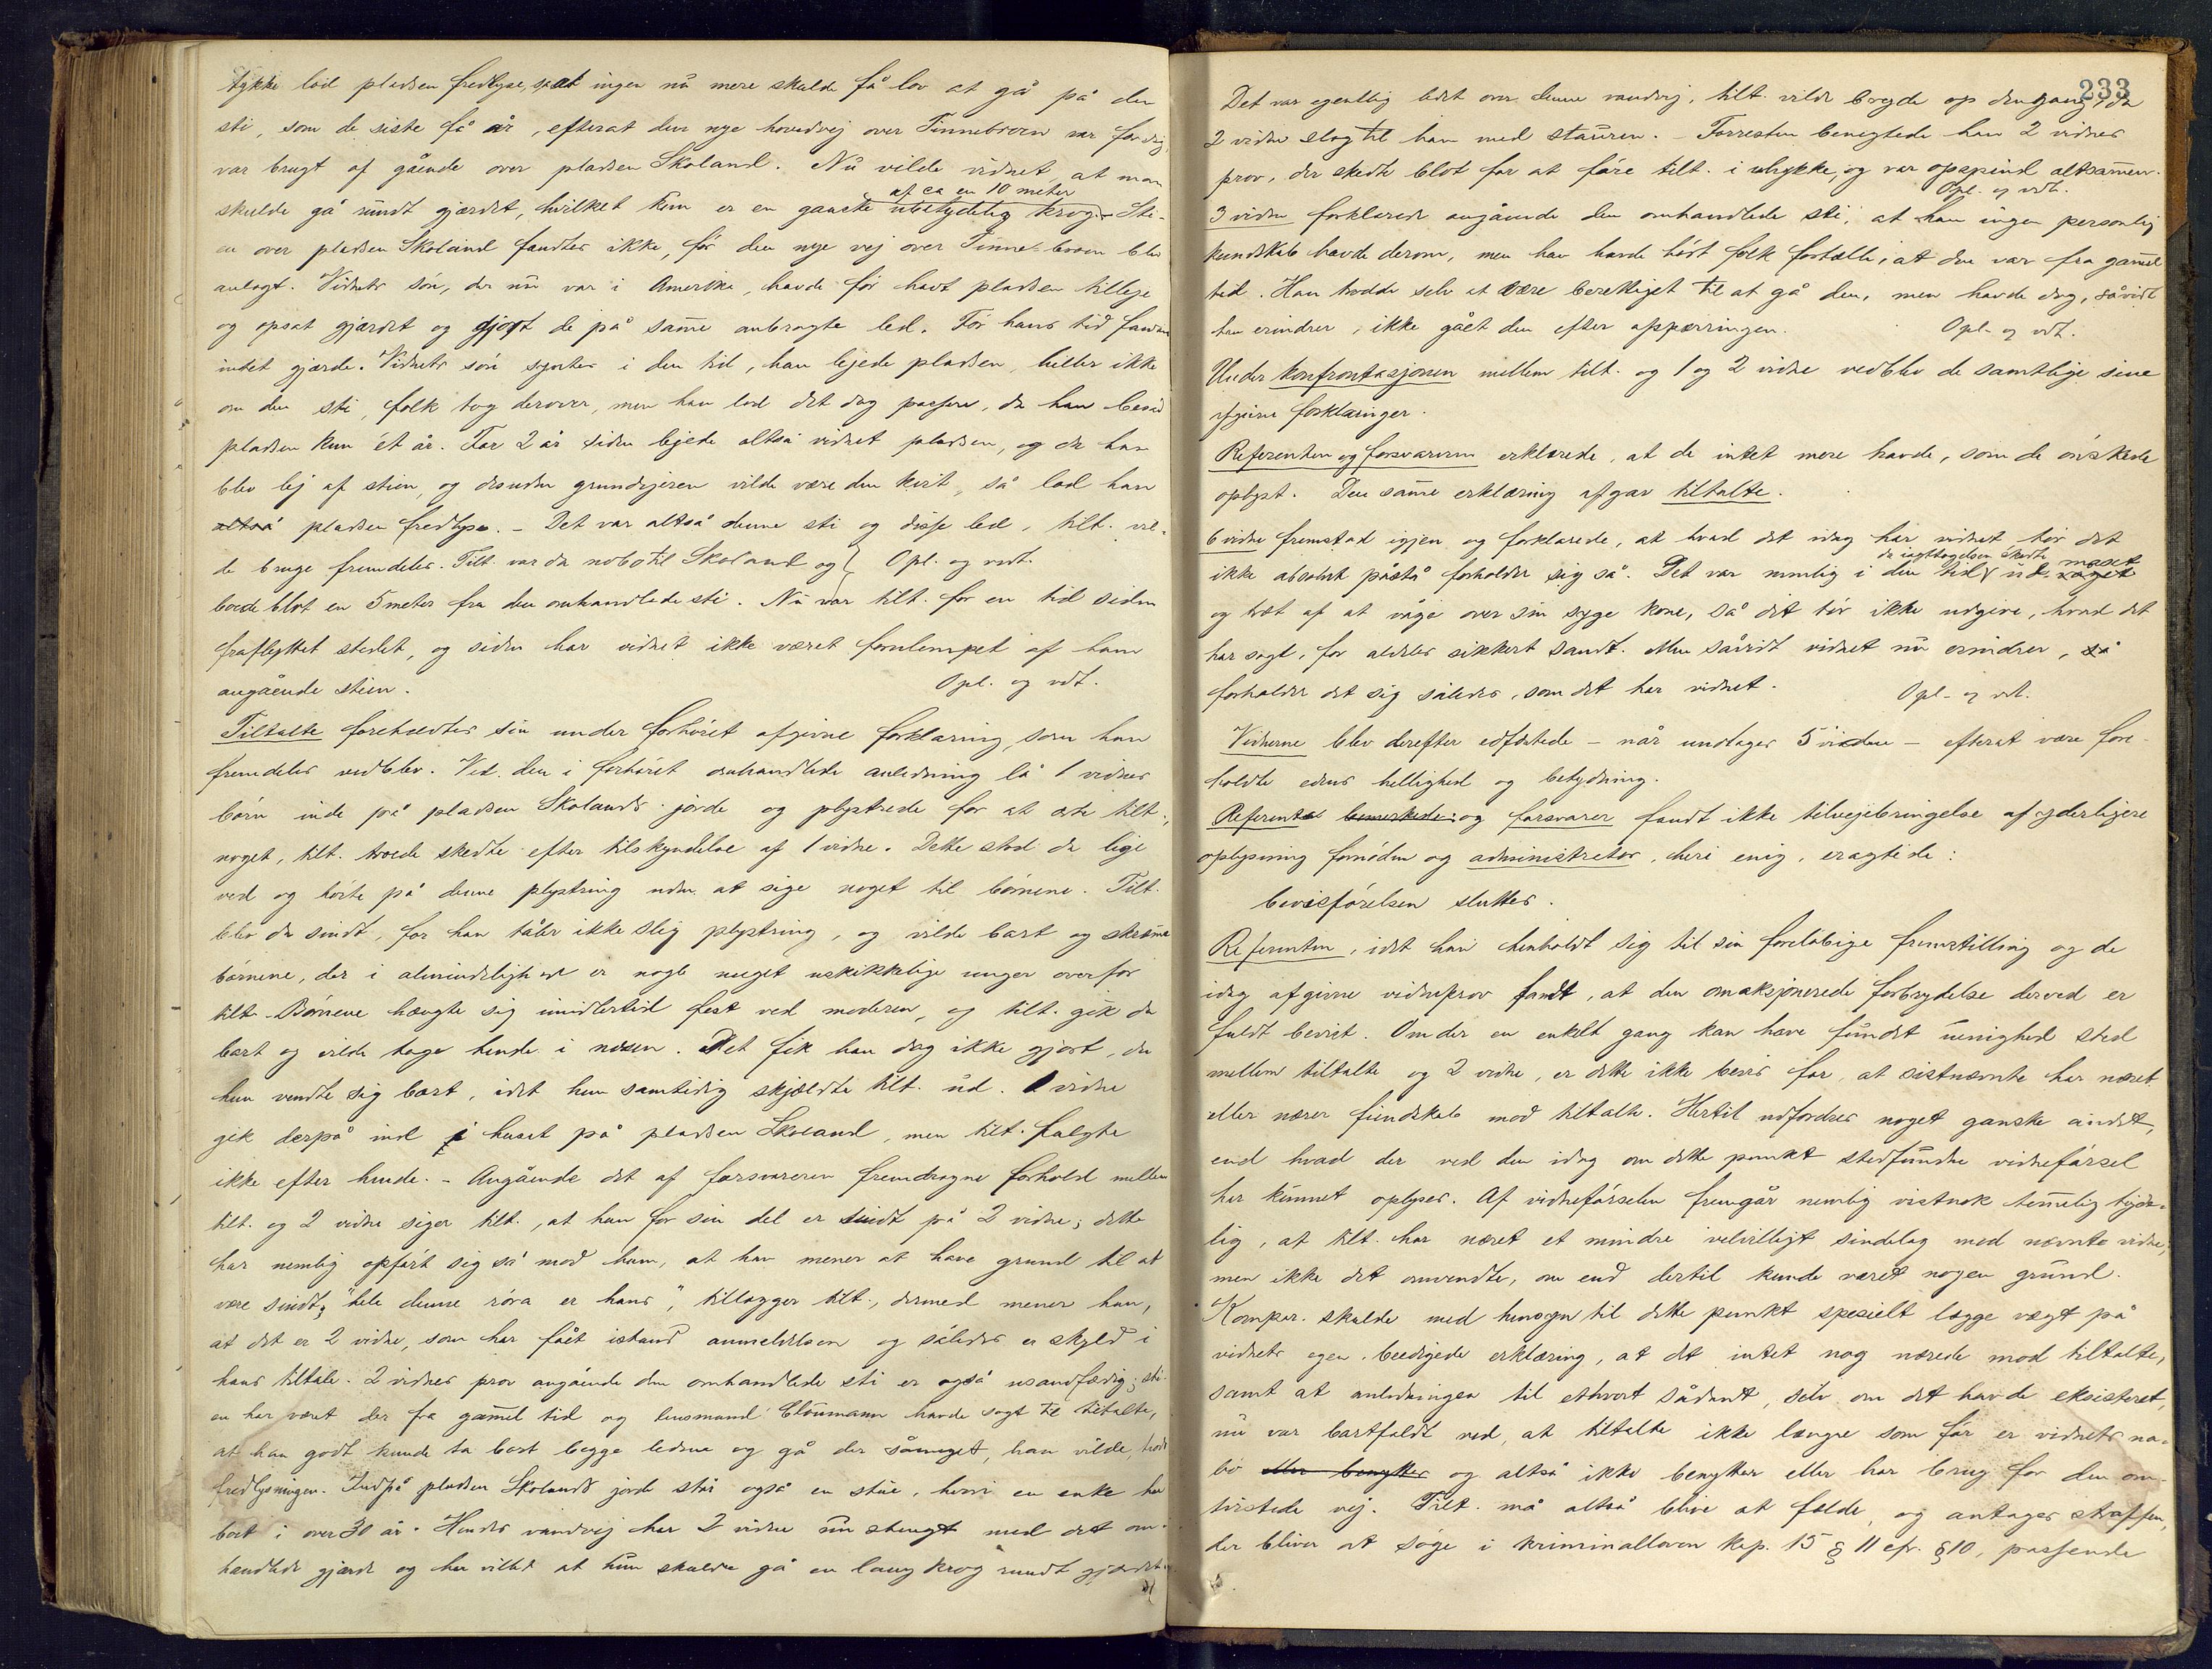 tykke lod pladsen fredlyse, så at ingen nu mere skulde få lov at gå på den
sti, som de siste få år, efterat den nye hovedvej over Tinnebroen var færdig,
var brugt af gående over pladsen Skoland. Nu vilde vidnet, at man
skulde gå rundt gjærdet, hvilket kun er en ganske ubetydelig krog af ca en 10 meter. Sti-
en over pladsen Skoland fandtes ikke, før den nye vej over Tinnebroen blev
anlagt. Vidnets søn, der nu var i Amerika, havde før havt pladsen tilleje
og opsat gjærdet og gjort de på samme anbragte led. Før hans tid fandtes
intet gjærde. Vidnets søn syntes i den tid, han lejede pladsen, heller ikke
om den sti, folk tog derover, men han lod det dog passere, da han besad
pladsen kun ét år. For 2 år siden lejede altså vidnet pladsen, og da han
blev lej af stien, og desuden grundejeren vilde være den kvit, så lod han
altså pladsen fredlyse. - Det var altså denne sti og disse led, tilt. vil-
de bruge fremdeles. Tilt. var da nabo til Skoland og } Opl. og vedt.
boede blot en 5 meter fra den omhandlede sti. Nu var tilt. for en tid siden
fraflyttet stedet, og siden har vidnet ikke været fornlempet af ham
angående stien. Opl. og vdt.
Tiltalte foreholdtes sin under forhøret afgivne forklaring, som han
fremdeles vedblev. Ved den i forhøret omhandlede anledning lå 1 vidnes
børn inde på pladsen Skolands jorde og plystrede for at erte tilt.,
noget, tilt. troede skedte efter tilskyndelse af 1 vidne. Dette stod da lige
ved og hørte på denne plystring uden at sige noget til børnene. Tilt.
blev da sindt, for han tåler ikke slig plystring, og vilde bort og skræmme
børnene, der i almindelighed er nogle meget uskikkelige unger overfor
tilt. Børnene hængte sig imidlertid fest ved moderen, og tilt. gik da
bort og vilde tage hende i næsen. Det fik han dog ikke gjort, da
hun vendte sig bort, idet hun samtidig skjældte tilt. ud. 1 vidne
gik derpå ind i huset på pladsen Skoland, men tilt. fulgte
ikke efter hende. - Angående det af forsvareren fremdragne forhold mellem
tilt. og 2 vidne siger tilt., at han for sin del er sindt på 2 vidne; dette
har nemlig opført sig så mod ham, at han mener at have grund til at
være sindt; "hele denne røra er hans", tillægger tilt., dermed mener han,
at det er 2 vidne, som har fået istand anmeldelsen og således er skyld i
hans tiltale. 2 vidnes prov angående den omhandlede sti er også usandfærdig; sti-
en har været der fra gammel tid og lensmand Cloumann havde sagt til tiltalte,
at han godt kunde ta bort begge ledene og gå der såmeget, han vilde, trods
fredlysningen. Indpå pladsen Skolands jorde står også en stue, hvori en enke har
boet i over 30 år. Hendes vandvej har 2 vidne nu stengt med det om-
handlede gjærde og har villet at hun skulde gå en lang krog rundt gjærdet.
233
Det var egentlig ledet over denne vandvej, tilt. vilde bryde op dengang, da
2 vidne slog til ham med stauren. - Forresten benegtede han 2 vidnes
prov, der skedte blot for at føre tilt. i ulykke, og var opspind altsammen.
Opl. og vdt.
3 vidne forklarede angående den omhandlede sti, at han ingen personlig
kundskab havde derom, men han havde hørt folk fortælle, at den var fra gammel
tid. Han trodde selv at være berettiget til at gå den, men havde dog, såvidt
han erindrer, ikke gået den efter oppærringen. Opl. og vdt.
Under konfrontasjonen mellem tilt. og 1 og 2 vidne vedblev de samtlige sine
afgivne forklaringer.
Referenten og forsvareren erklærede, at de intet mere havde, som de ønskede
oplyst. Den samme erklæring afgav tiltalte.
6 vidne fremstod igjen og forklarede, at hvad det idag har vidnet tør det
ikke absolut påstå forholder sig så. Det var nemlig i den tid, da iagttagelsen skedte, ud maset
og træt af at våge over sin syge kone, så det tør ikke udgive, hvad det
har sagt, for aldeles sikkert sandt. Men såvidt vidnet nu erindrer, så
forholder det sig således, som det har vidnet. Opl. og vdt.
Vidnerne blev derefter edfæstede - når undtages 5 vidne - efterat være fore-
holdte edens hellighed og betydning.
Referent bemerkede: og forsvarer fandt ikke tilvejebringelse af yderligere
oplysning fornøden og administrator, heri enig, eragtede:
bevisførelsen sluttes.
Referenten, idet han henholdt sig til sin foreløbige fremstilling og de
idag afgivne vidneprov fandt, at den omaksjonerede forbrydelse derved er
fuldt bevist. Om der en enkelt gang kan have fundet uenighed sted
mellem tiltalte og 2 vidne, er dette ikke bevis for, at sistnævnte har næret
eller nærer fiendskab mod tiltalte. Hertil udfordres noget ganske andet,
end hvad der ved den idag om dette punkt stedfundne vidneførsel
har kunnet oplyses. Af vidneførselen fremgår nemlig vistnok temmelig tyde-
lig, at tilt. har næret et mindre velvilligt sindelag mod nævnte vidne,
men ikke det omvendte, om end dertil kunde været nogen grund.
Kompar. skulde med hensyn til dette punkt spesielt lægge vægt på
vidnets egen beedigede erklæring, at det intet nag nærede mod tiltalte,
samt at anledningen til ethvert sådant, selv om det havde eksisteret,
nu var bortfaldt ved, at tiltalte ikke længre som før er vidnets na-
bo eller benytter og altså ikke benytter eller har brug for den om-
tvistede vej. Tilt. må altså blive at fælde, og antages straffen,
der bliver at søge i kriminalloven kap. 15 § 11 cfr. § 10, passende